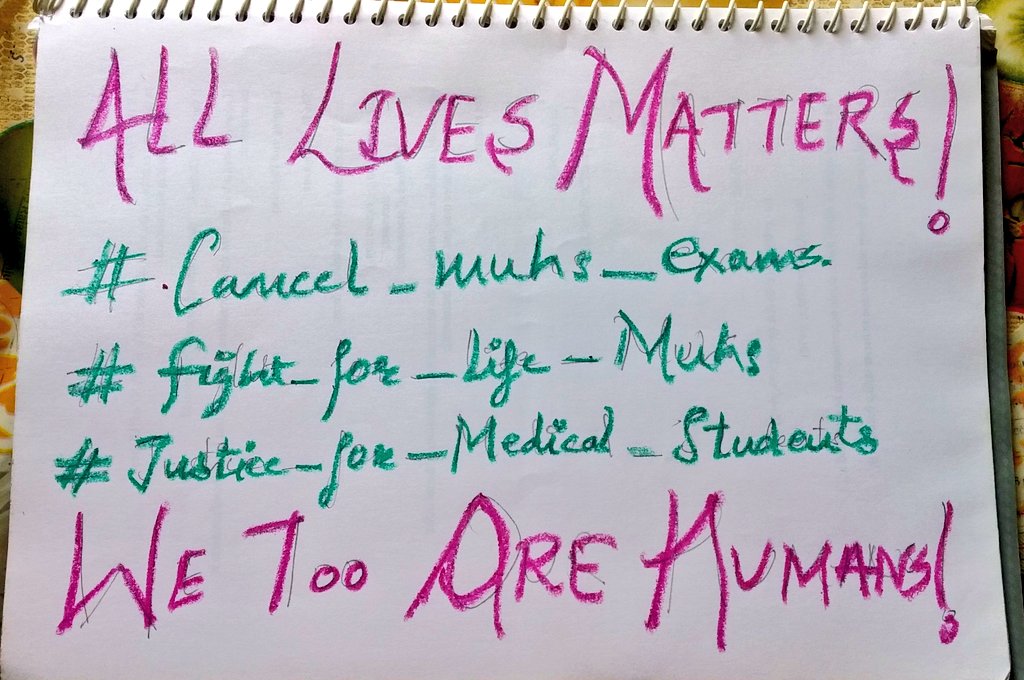 ALL LIVES MATTERS!
# Cancel_muhs_exams.
# fight_for_life_Muhs
# Justice_for_Medical_Students
WE TOO ARE HUMANS!